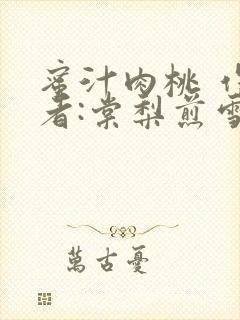 蜜汁肉桃 作
者:棠梨煎雪
萬古憂